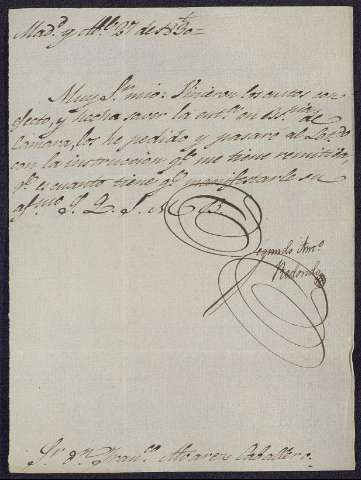 Mad.d y Ab.l 27 de 1830=
Muy S.r mio: Vinieron los autos con
efecto, y hecha saver la ant.r en
Camara, los he pedido y pasaro al
con la instruccion q.e me tiene remitida,
q.e es cuanto tiene q.e manifestarle su
af.mo S. Q. S. M. B.
Segundo Ant.o
Redondo
S.r D.n Fran.co Alvarez Caballero.